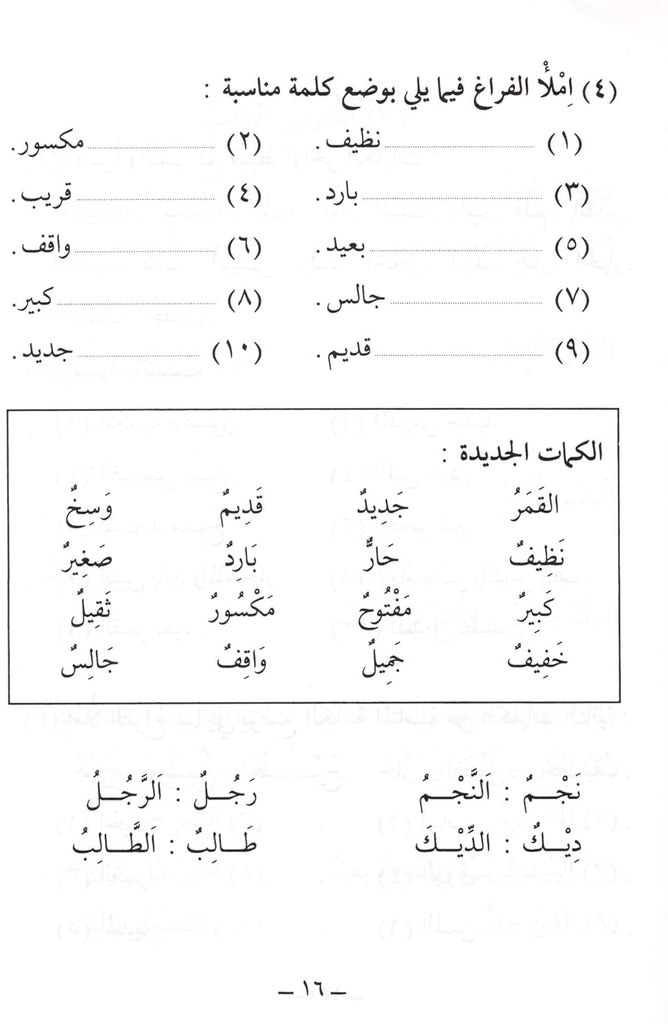 (٤) اِمْلَأْ الفراغ فيما يلي بوضع كلمة مناسبة :
(١) ........................ نظيف . (٢) ........................ مكسور .
(٣) ........................ بارد . (٤) ........................ قريب .
(٥) ........................ بعيد . (٦) ........................ واقف .
(٧) ........................ جالس . (٨) ........................ كبير .
(٩) ........................ قديم . (١٠) ........................ جديد .
الكلمات الجديدة :
القَمَرُ جَدِيدٌ قَدِيمٌ وَسِخٌ
نَظِيفٌ حَارٌّ بَارِدٌ صَغِيرٌ
كَبِيرٌ مَفْتُوحٌ مَكْسُورٌ ثَقِيلٌ
خَفِيفٌ جَمِيلٌ وَاقِفٌ جَالِسٌ
نَجْـمٌ : اَلنَّجْـمُ رَجُـلٌ : اَلرَّجُـلُ
دِيْـكٌ : الدِّيْـكَ طَـالِبٌ : اَلطَّـالِبُ
– ١٦ –